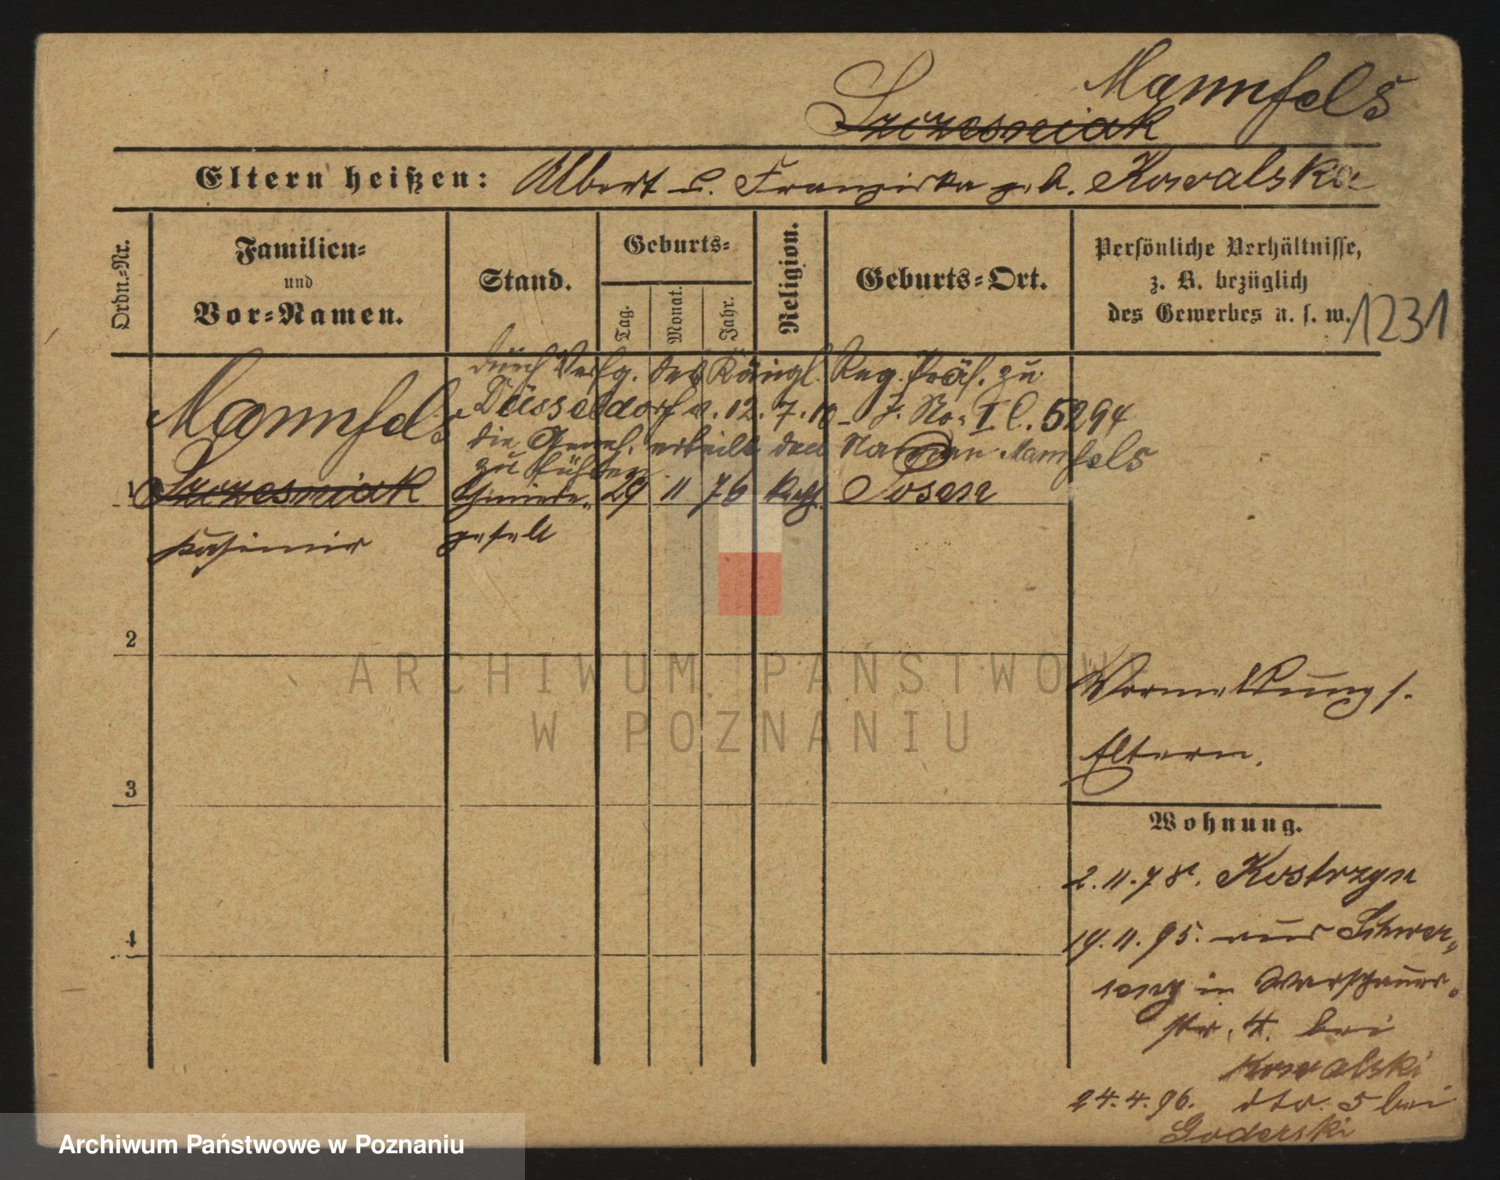 Mannfels
Szczesniak
Eltern heißen: Albert u. Franziska geb. Kowalska
Ordn.-Nr.
Familien-
und
Vor-Namen.
Stand.
Geburts-
Tag.
Monat.
Jahr.
Religion.
Geburts-Ort.
Persönliche Verhältnisse,
z. B. bezüglich
des Gewerbes u. s. w.
1231
durch Verfg. des Königl. Reg. Präs. zu
Düsseldorf v. 12.7.10 - J. No: I C. 5294
die Geneh. erteilt den Namen Mannfels
zu führen
Mannfels
1 Szczesniak Schmiede- 29 11 76 kath. Posen
Kasimir gesell
2
3
4
Vormeldung s.
Eltern.
Wohnung.
2.11.78. Kostrzyn
19.11.95. aus Schwer-
senz in Warschauer-
str. 4. bei
Kowalski
24.4.96. dto. 5 bei
Goderski
ARCHIWUM PAŃSTWOWE
W POZNANIU
Archiwum Państwowe w Poznaniu